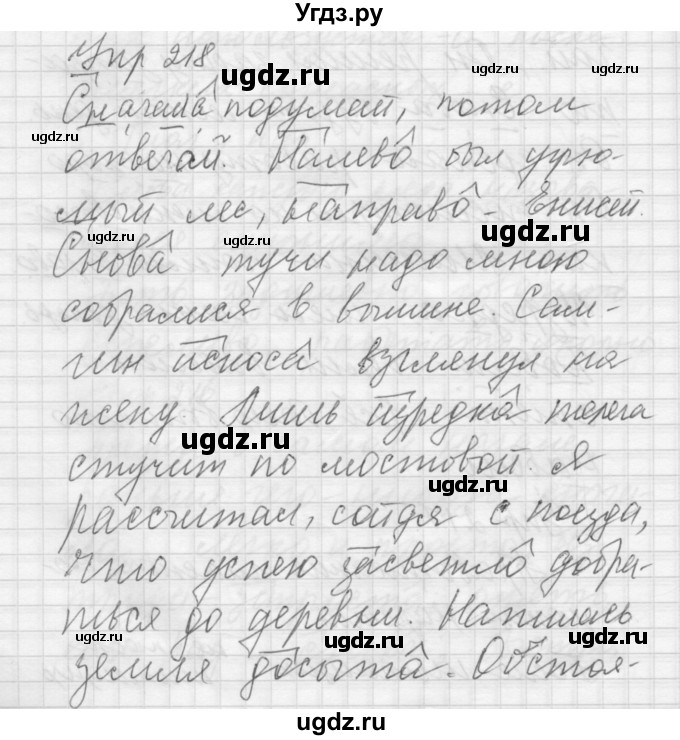 Угдз.ру
Упр 218
Сначала подумай, потом
отвечай. Налево был угрю-
мый лес, направо - Енисей.
Снова тучи надо мною
собралися в вышине. Сам-
гин искоса взглянул на
жену. Лишь изредка телега
стучит по мостовой. Я
рассчитал, сойдя с поезда,
что успею засветло добра-
ться до деревни. Напилась
земля досыта. Обстоя-
ugdz.ru
ugdz.ru
ugdz.ru
ugdz.ru
ugdz.ru
ugdz.ru
ugdz.ru
ugdz.ru
ugdz.ru
ugdz.ru
ugdz.ru
ugdz.ru
ugdz.ru
ugdz.ru